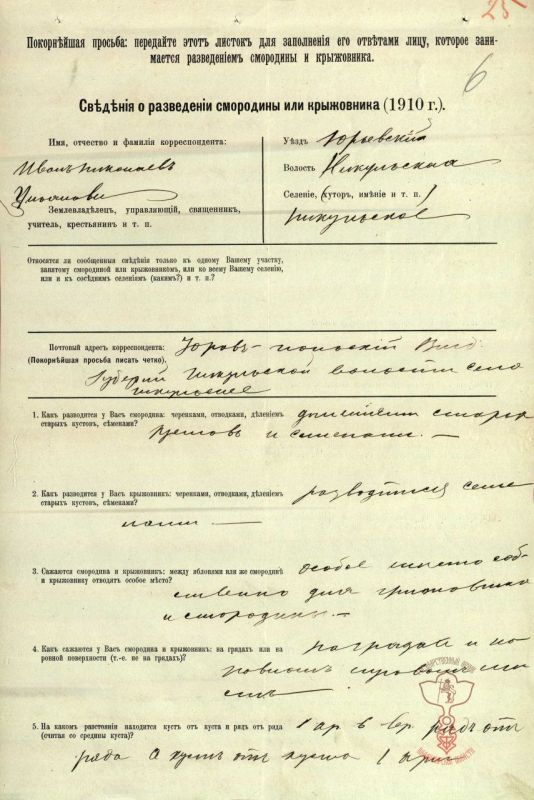 25
6
Покорнѣйшая просьба: передайте этотъ листокъ для заполненія его отвѣтами лицу, которое зани-
мается разведеніемъ смородины и крыжовника.
Свѣдѣнія о разведеніи смородины или крыжовника (1910 г.).
Имя, отчество и фамилія корреспондента:
Иванъ Николаевъ
Землевладѣлецъ, управляющій, священникъ,
учитель, крестьянинъ и т. п.
Уѣздъ Юрьевскій
Волость Никульская
Селеніе, (хуторъ, имѣніе и т. п.)
Никульское
Относятся ли сообщенныя свѣдѣнія только къ одному Вашему участку,
занятому смородиной или крыжовникомъ, или ко всему Вашему селенію,
или и къ сосѣднимъ селеніямъ (какимъ?) и т. п.?
Почтовый адресъ корреспондента: Юрьев-польскій Влад.
(Покорнѣйшая просьба писать четко). Губерніи Никульской волости село
Никульское
1. Какъ разводится у Васъ смородина: черенками, отводками, дѣленіемъ
старыхъ кустовъ, сѣменами?
деленіем старых
кустовъ и сменами. —
2. Какъ разводится у Васъ крыжовникъ: черенками, отводками, дѣленіемъ
старыхъ кустовъ, сѣменами?
разводится семе
нами —
3. Сажаются смородина и крыжовникъ: между яблонями или же смородинѣ
и крыжовнику отводятъ особое мѣсто?
особое место соб-
ственно для
и смородины. —
4. Какъ сажаются у Васъ смородина и крыжовникъ: на грядахъ или на
ровной поверхности (т.-е. не на грядахъ)?
на грядах и на
ровном
5. На какомъ разстояніи находится кустъ отъ куста и рядъ отъ ряда
(считая со средины куста)?
1 ар. рядъ отъ
ряда а кустъ отъ куста 1 арш.